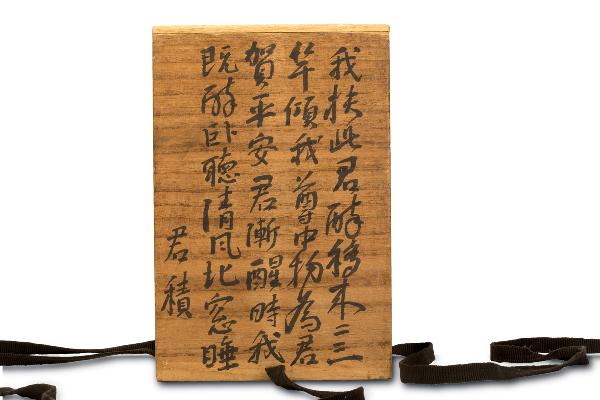 我扶此君醉移来二三
竿傾我尊中物為君
賀平安君漸醒時我
既醉卧聴清風北窓睡
君積